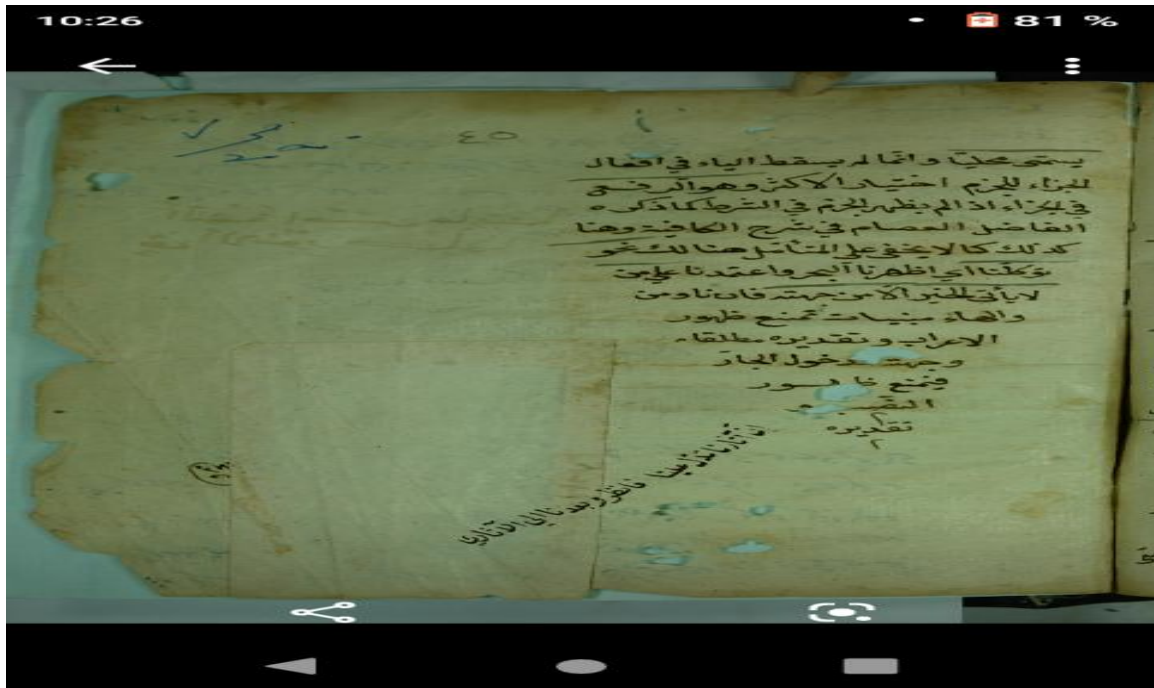 10:26
81 %
٤٥
يسمى محليا وانما لم يسقط الياء في افعال
الجزاء للجزم اختيار الاكثر وهو الرفع
في الجزاء اذا لم يظهر الجزم في الشرط كما ذكره
الفاضل العصام في شرح الكافية وهنا
كذلك كما لا يخفى على المتأمل هنالك نحو
توكلنا اي اظهرنا العجز واعتمدنا على من
لا يأتى الخير الا من جهته فان نا ومن
والهاء مبنيات تمنع ظهور
الاعراب وتقديره مطلقاء
وجهته دخول الجار
فيمنع
تقديره
ان آثارنا تدل علينا فانظروا بعدنا الى الآثار